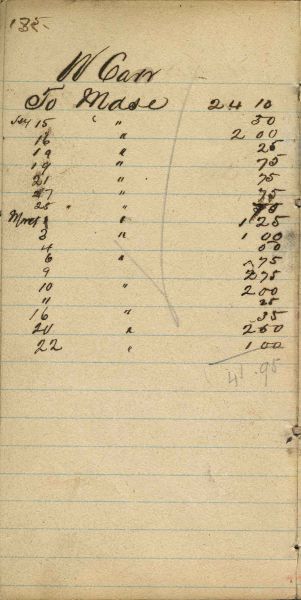 135.
W Carr
To Mdse 24 10
15 " " 50
16 " 2 00
19 " 25
19 " 75
21 " 75
27 " 75
25 " "
" 1 25
3 " 1 00
4 50
6 " 75
9 2 75
10 " 2 00
11 25
16 " 35
20 " 2 50
22 " 1 00
41.95